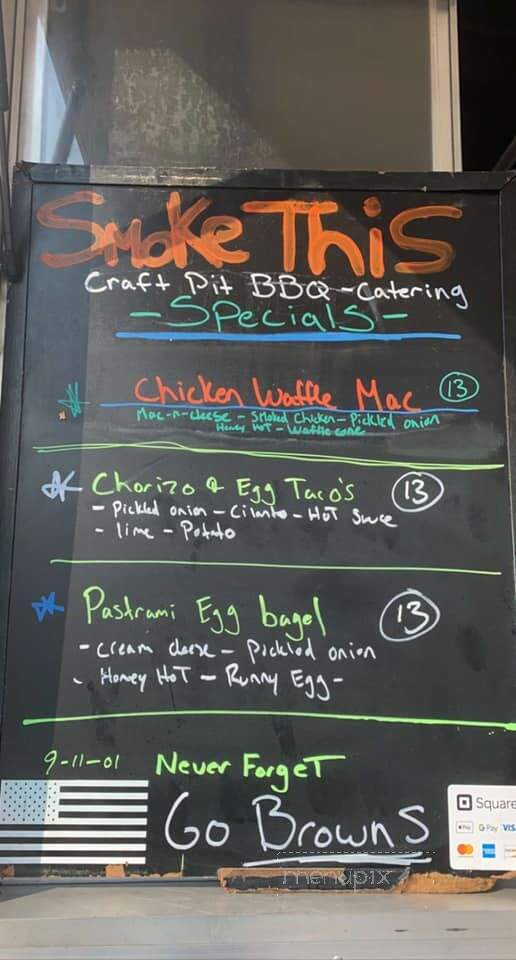 Smoke This
Craft Pit BBQ - Catering
- Specials -
Chicken Waffle Mac 13
Mac-n-cheese - Smoked Chicken - Pickled onion
Honey HoT - Waffle cone
Chorizo & Egg Taco's 13
- Pickled onion - Cilantro - HoT Sauce
- lime - Potato
Pastrami Egg bagel 13
- cream cheese - Pickled onion
- Honey HoT - Runny Egg -
9-11-01 Never ForgeT
Go Browns
Square
Pay G Pay VISA
menupix